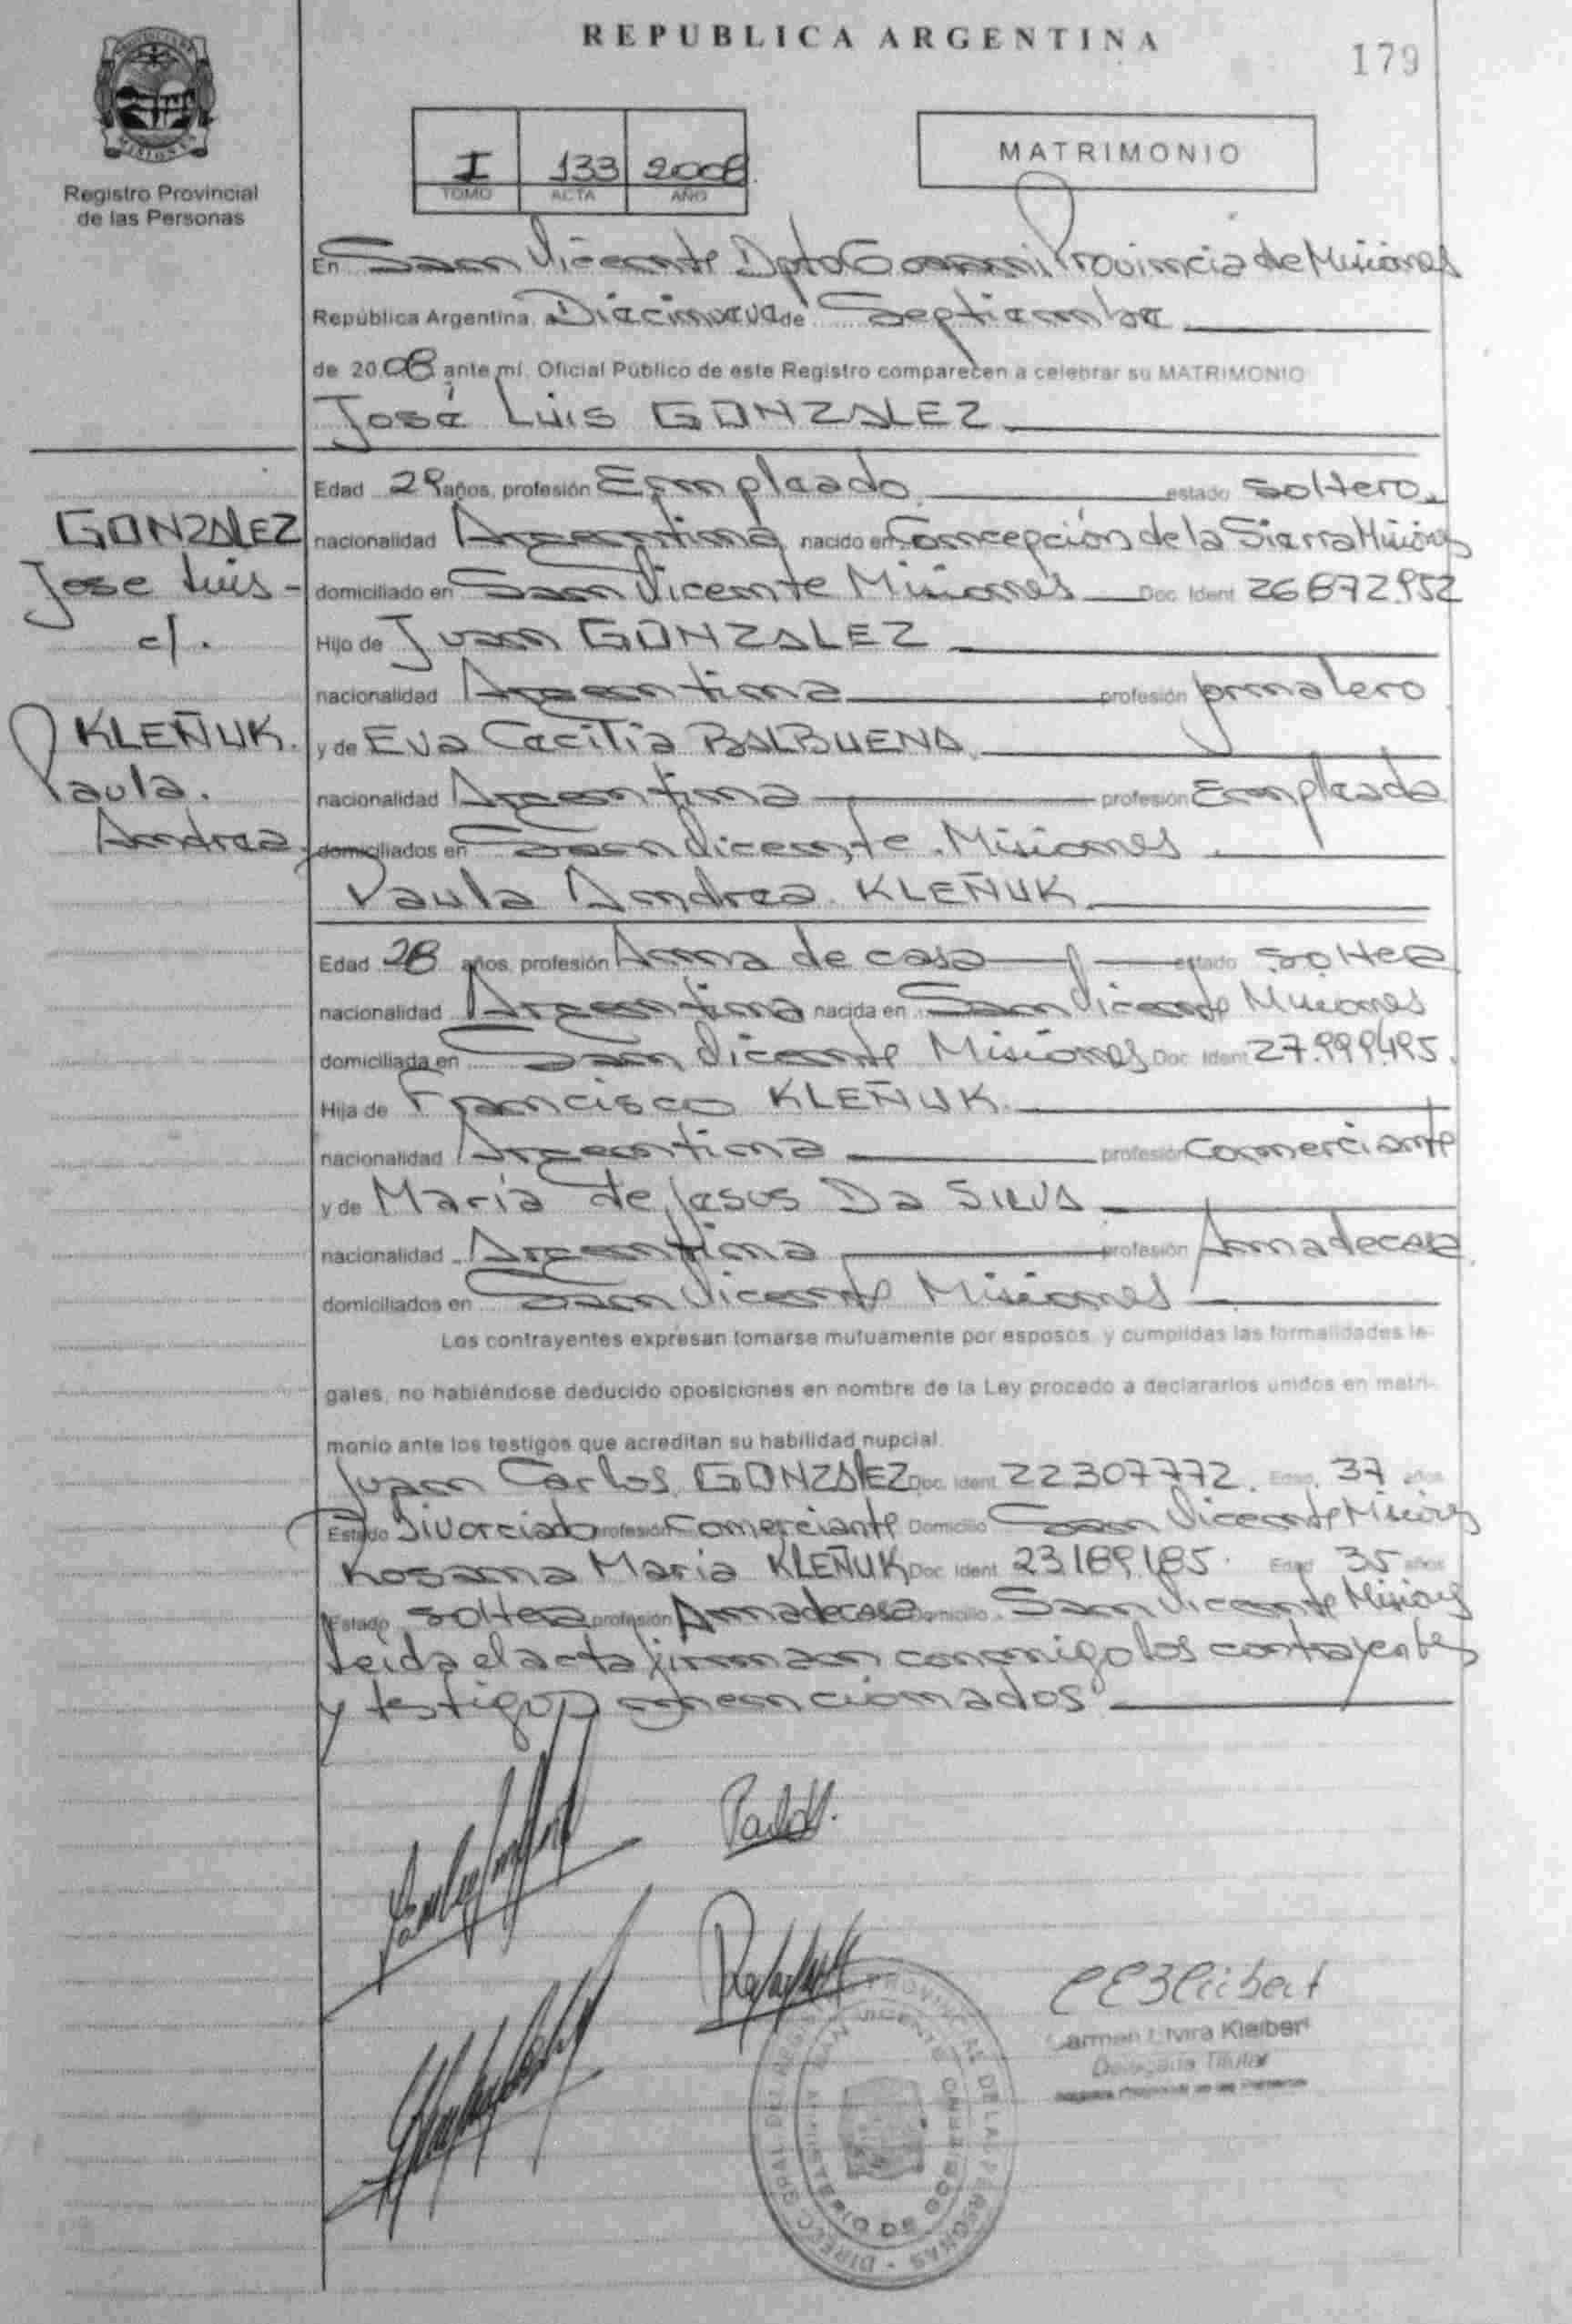 REPUBLICA ARGENTINA
179
Registro Provincial
de las Personas
I 133 2008
TOMO ACTA AÑO
MATRIMONIO
En San Vicente Dpto Guaraní Provincia de Misiones
República Argentina, a Diecinueve de Septiembre
de 2008 ante mí, Oficial Público de este Registro comparecen a celebrar su MATRIMONIO
José Luis GONZALEZ
GONZALEZ
Jose Luis -
c/.
KLEÑUK.
Paula.
Andrea.
Edad 29 años, profesión Empleado estado soltero
nacionalidad Argentina nacido en Concepción de la Sierra Misiones
domiciliado en San Vicente Misiones Doc. Ident. 26872.952
Hijo de Juan GONZALEZ
nacionalidad Argentina profesión jornalero
y de Eva Cecilia BALBUENA
nacionalidad Argentina profesión Empleada
domiciliados en San Vicente . Misiones
Paula Andrea KLEÑUK
Edad 28 años, profesión Ama de casa estado soltera
nacionalidad Argentina nacida en San Vicente Misiones
domiciliada en San Vicente Misiones Doc. Ident. 27.999.495.
Hija de Francisco KLEÑUK.
nacionalidad Argentina profesión Comerciante
y de María de Jesus Da SILVA
nacionalidad Argentina profesión Ama de casa
domiciliados en San Vicente Misiones
Los contrayentes expresan tomarse mutuamente por esposos, y cumplidas las formalidades le-
gales, no habiéndose deducido oposiciones en nombre de la Ley procedo a declararlos unidos en matri-
monio ante los testigos que acreditan su habilidad nupcial.
Juan Carlos GONZALEZ Doc. Ident. 22307772. Edad 37 años
Estado Divorciado profesión Comerciante Domicilio San Vicente Misiones
Rosana Maria KLEÑUK Doc. Ident. 23189185. Edad 35 años
Estado soltera profesión Ama de casa Domicilio San Vicente Misiones
Leída el acta firman conmigo los contrayentes
y testigos mencionados
Carmen Elvira Kleibert
Delegada Titular
Registro Provincial de las Personas
DIRECC. GRAL. DEL REGISTRO PROVINCIAL DE LAS PERSONAS
SAN VICENTE
MINISTERIO DE GOBIERNO